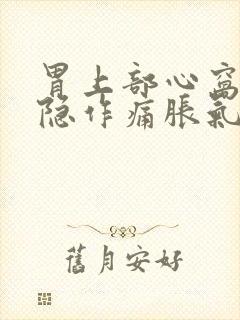 胃上部心窝
隐作痛胀氣
舊月安好